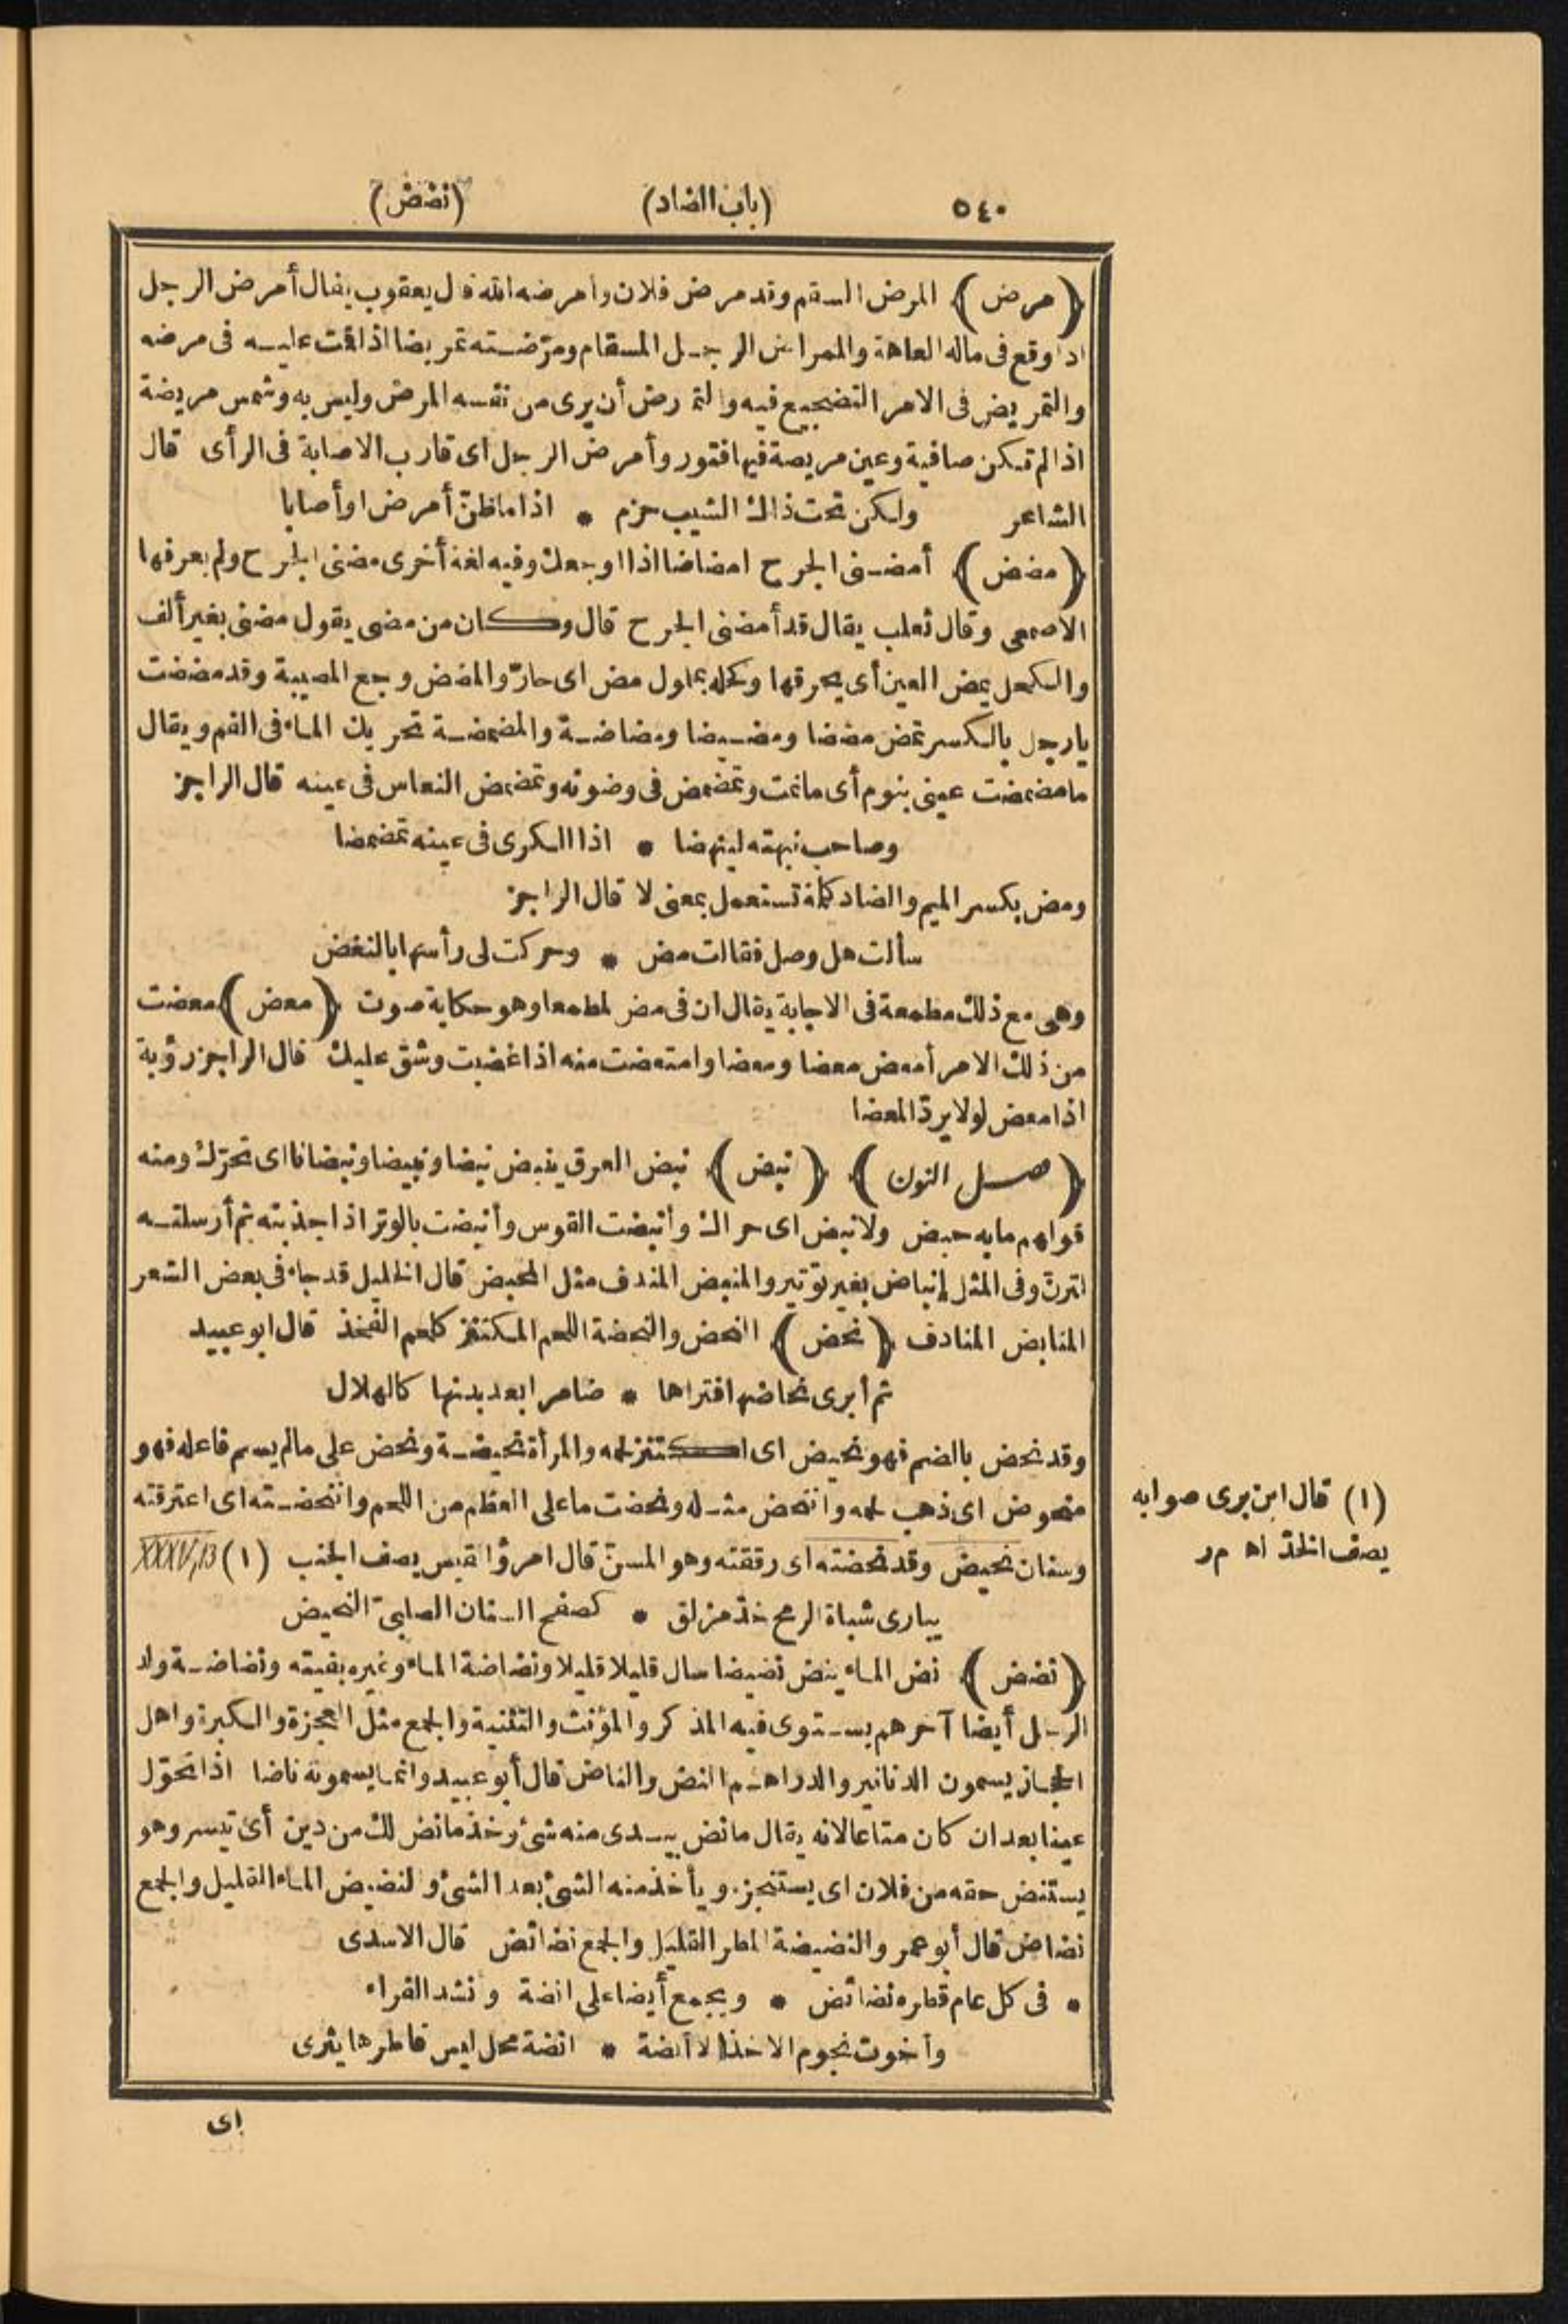 ٥٤٠ (باب الضاد) (نضض)
(مرض) المرض السقم وقد مرض فلان وأمرضه الله قال يعقوب يقال أمرض الرجل
اذا وقع فى ماله العاهة والممراض الرجل المسقام ومرّضته تمريضا اذا قمت عليه فى مرضه
والتمريض فى الامر التضجيع فيه والتمارض أن يرى من نفسه المرض وليس به وشمس مريضة
اذا لم تكن صافية وعين مريضة فيها فتور وأمرض الرجل اى قارب الاصابة فى الرأى قال
الشاعر ولكن تحت ذاك الشيب حزم * اذا ما ظنّ أمرض او أصابا
(مضض) أمضنى الجرح امضاضا اذا اوجعك وفيه لغة أخرى مضنى الجرح ولم يعرفها
الاصمعى وقال ثعلب يقال قد أمضنى الجرح قال وكان من مضى يقول مضنى بغير ألف
والكحل يمض العين أى يحرقها وكحله بملول مض اى حارّ والمضض وجع المصيبة وقد مضضت
يا رجل بالكسر تمض مضضا ومضيضا ومضاضة والمضمضة تحريك الماء فى الفم ويقال
ما مضمضت عينى بنوم أى ما نمت وتمضمض فى وضوئه وتمضمض النعاس فى عينه قال الراجز
وصاحب نبهته لينهضا * اذا الكرى فى عينه تمضمضا
ومض بكسر الميم والضاد كلمة تستعمل بمعنى لا قال الراجز
سألت هل وصل فقالت مض * وحركت لى رأسها بالنغض
وهى مع ذلك مطمعة فى الاجابة يقال ان فى مض لمطمعا وهو حكاية صوت (معض) معضت
من ذلك الامر أمعض معضا ومعضا وامتعضت منه اذا غضبت وشق عليك قال الراجز رؤبة
اذا معض لولا يردّ المعضا
(فصل النون) (نبض) نبض العرق ينبض نبضا ونبيضا ونبضانا اى تحرّك ومنه
قولهم ما به حبض ولا نبض اى حراك وأنبضت القوس وأنبضت بالوتر اذا جذبته ثم أرسلته
لترنّ وفى المثل إنباض بغير توتير والمنبض المندف مثل المحبض قال الخليل قد جاء فى بعض الشعر
المنابض المنادف (نحض) النحض والنحضة اللحم المكتنز كلحم الفخذ قال ابو عبيد
ثم أبرى نحاضها فتراها * ضامرا بعد بدنها كالهلال
وقد نحض بالضم فهو نحيض اى اكتنز لحمه والمرأة نحيضة ونحض على ما لم يسم فاعله فهو
منحوض اى ذهب لحمه وانتحض مثله ونحضت ما على العظم من اللحم وانتحضته اى اعترقته
وسنان نحيض وقد نحضته اى رققته وهو المسنّ قال امرؤ القيس يصف الجنب (١) XXXV,13
يبارى شباة الرمح خدّ مزلق * كصفح السنان الصلبىّ النحيض
(نضض) نض الماء ينض نضيضا سال قليلا قليلا ونضاضة الماء وغيره بقيته ونضاضة ولد
الرجل أيضا آخرهم يستوى فيه المذكر والمؤنث والتثنية والجمع مثل العجزة والكبرة واهل
الحجاز يسمون الدنانير والدراهم النض والناض قال أبو عبيد وانما يسمونه ناضا اذا تحوّل
عينا بعد ان كان متاعا لانه يقال ما نض بيدى منه شئ وخذ ما نض لك من دين أى تيسر وهو
يستنض حقه من فلان اى يستنجزه ويأخذ منه الشئ بعد الشئ والنضيض الماء القليل والجمع
نضاض قال أبو عمرو النضيضة المطر القليل والجمع نضائض قال الاسدى
* فى كل عام قطره نضائض * ويجمع أيضا على انضة وانشد الفراء
وأخوت نجوم الاخذ الا أنضة * انضة محل ليس قاطرها يثرى
اى
(١) قال ابن برى صوابه
يصف الخدّ اه م ر